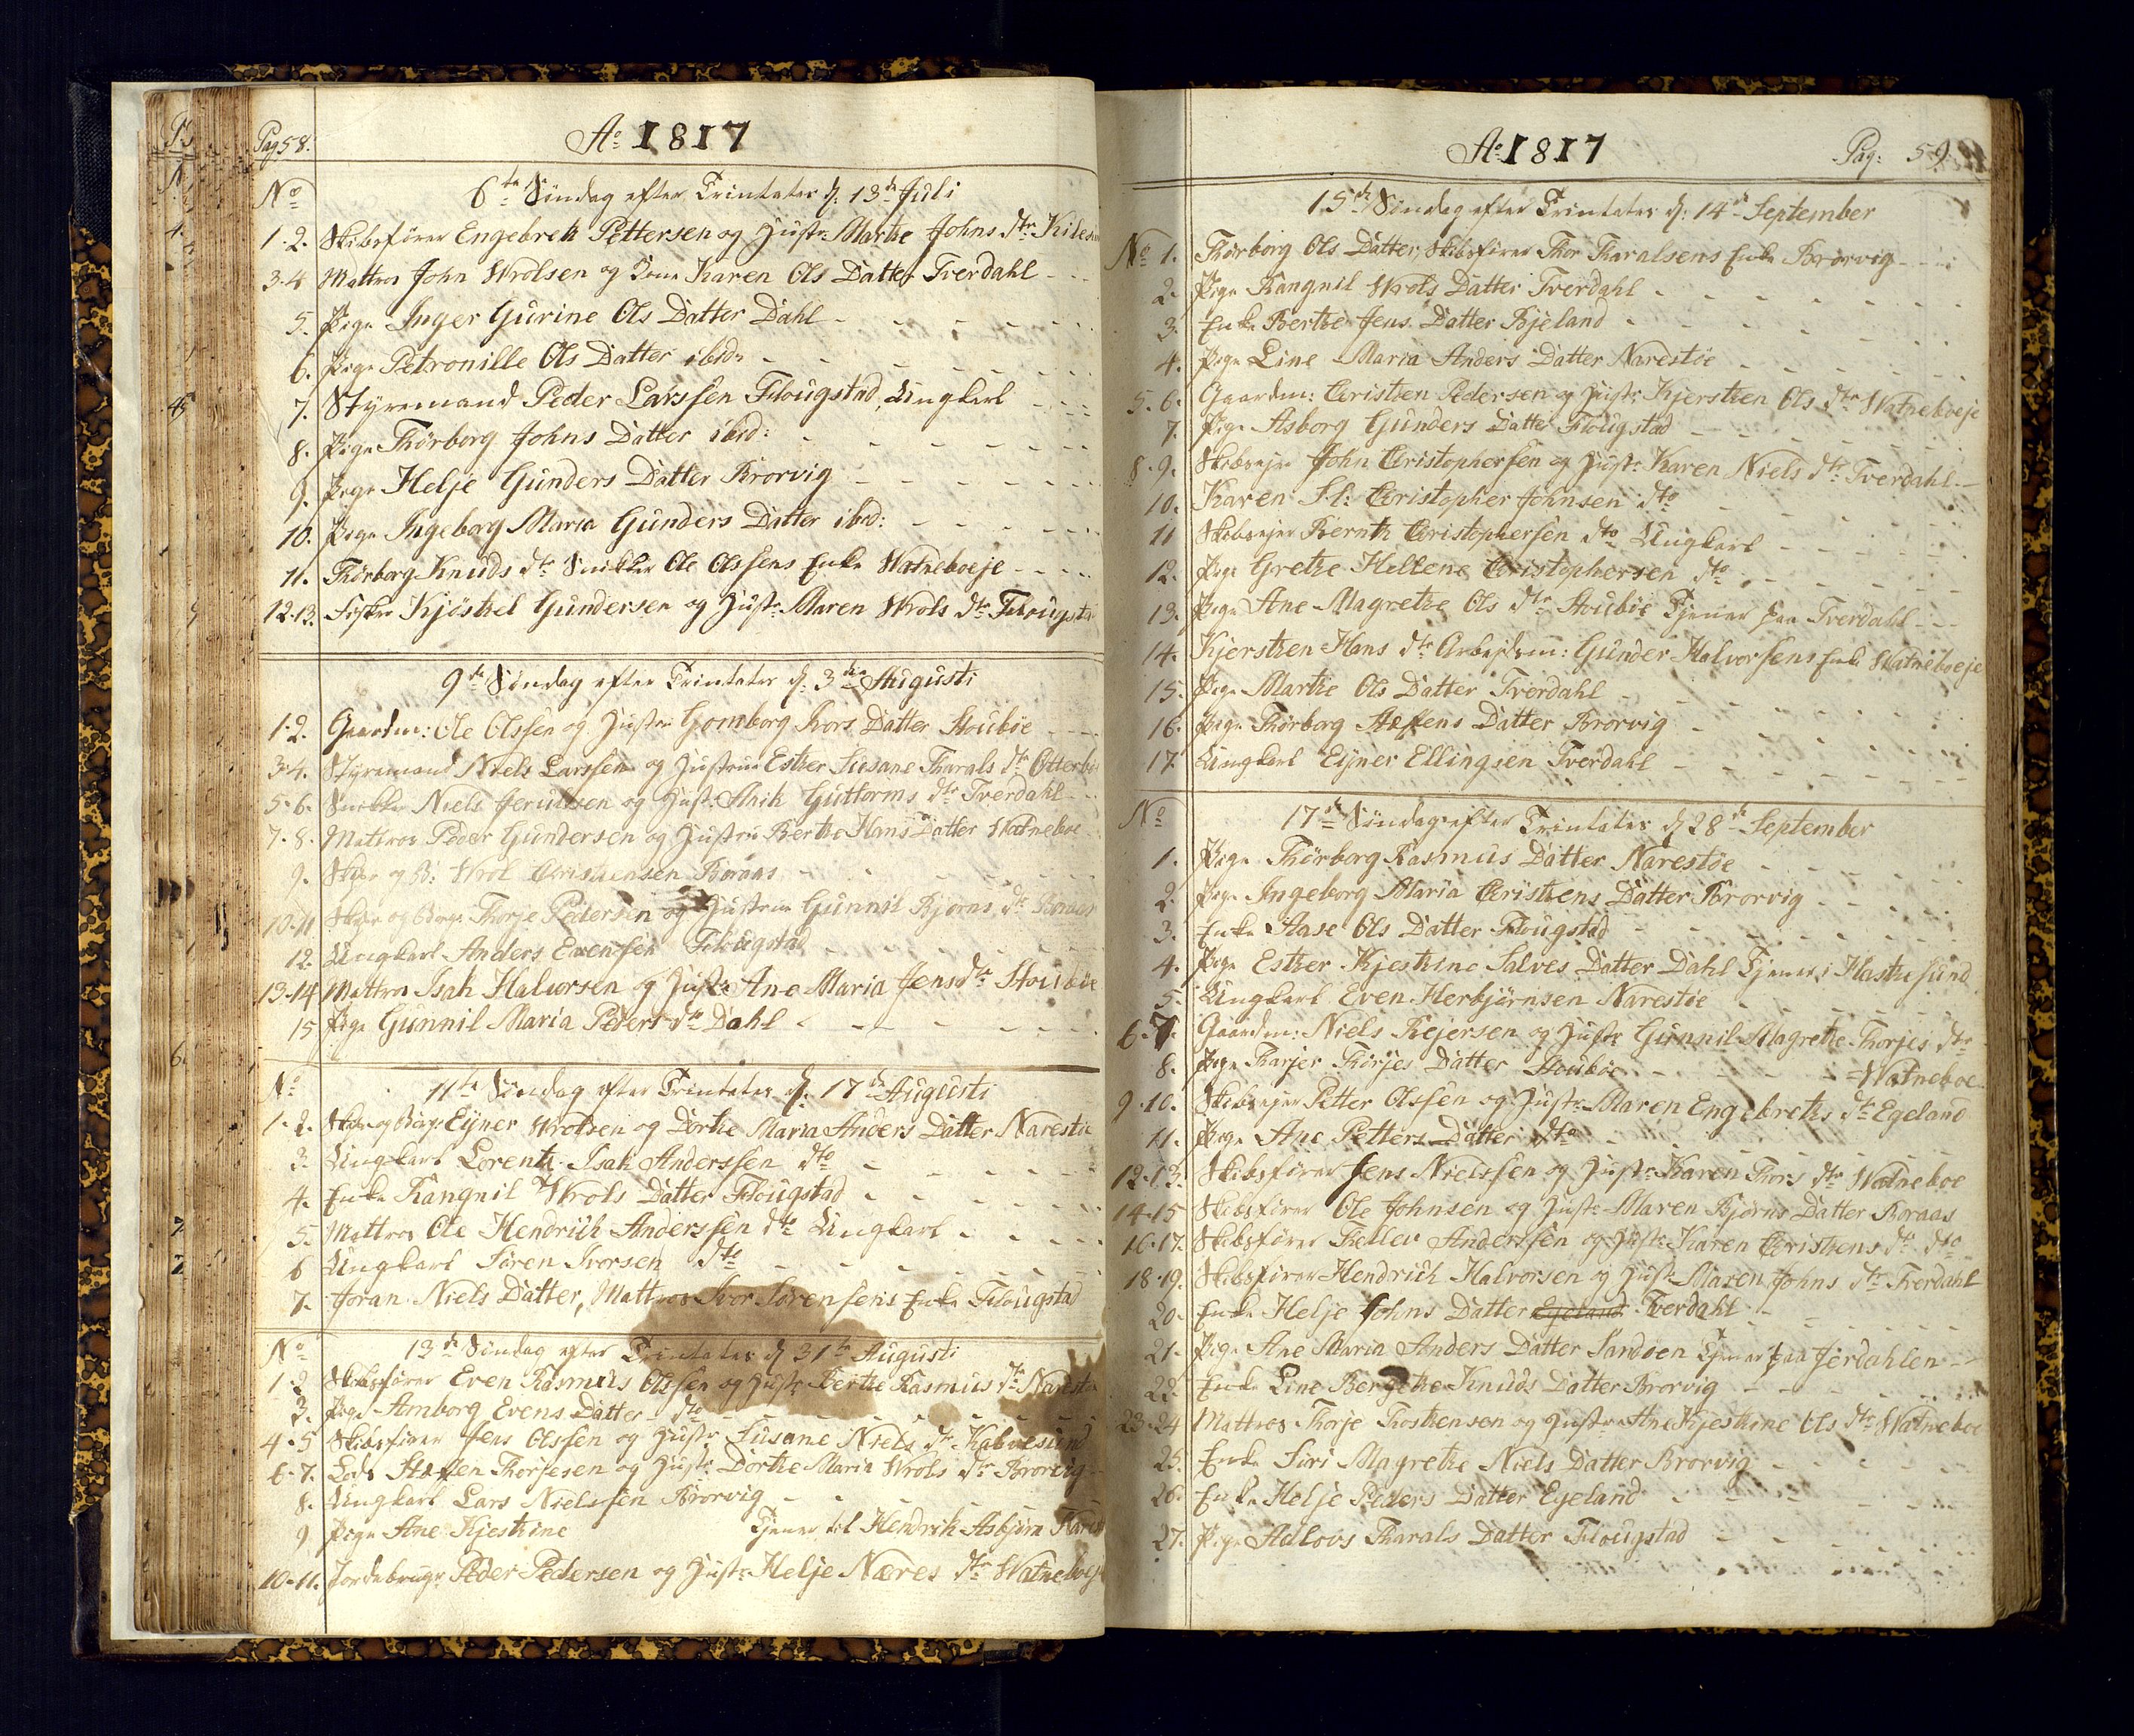 Pag 58.
Ao 1817
No 6te Søndag efter Trinitatis d: 13de Juli
1-2. Skibsfører Engebreth Pettersen og Hustr: Marthe Johns dtr
3-4 Mattros John Wrolsen og Karen Ols Datter Tverdahl
5. Pige Inger Gurine Ols Datter Dahl
6. Pige Petronille Ols Datter ibid:
7. Styremand Peder Larssen Flougstad, Ungkarl
8. Pige Thorborg Johns Datter ibid:
9. Pige Helje Gunders Datter Brorvig
10. Pige Ingeborg Maria Gunders Datter ibid:
11. Thorborg Knuds dtr Snikker Ole Olssens Enke Watneboeje
12-13. Fisker Kjøsthel Gundersen og Hustr: Maren Wrols dtr Flougsta
9de Søndag efter Trinitatis d: 3die Augusti
1-2. Gaardm: Ole Olssen og Hustru Gomborg Ivors Datter Stoubøe
3-4. Styremand Niels Larssen og Hustrue Esther Susane Tharals dtr
5-6. Snikker Niels og Hust: Anih Guttorms dtr Tverdahl
7-8. Mattros Peder Gundersen og Hustru Berthe Hans Datter Watneboe
9. Skper og B: Wrol Christiensen Boraas
10-11 Skper og Borger Thorje Pedersen og Hustrue Gunnil Bjørns dtr Boraas
12. Ungkarl Anders Evenssen Flougstad
13-14 Mattros Isak Halvorsen og Hustr: Ane Maria Jens dtr Stoubøe
15 Pige Gunnil Maria Peders dtr Dahl
No 11te Søndag efter Trinitatis d. 17de Augusti
1-2. Skper og Borg: Ejner Wrolsen og Dorthe Maria Anders Datter Narestøe
3. Ungkarl Lorentz Isak Anderssen dto
4. Enke Rangnil Wrols Datter Flougstad
5. Mattros Ole Hendrich Anderssen dto Ungkarl
6 Ungkarl Søren Ivorsen dto
7. Joran Niels Datter, Mattros Ivor Sørensens Enke Flougstad
No 13de Søndag efter Trinitatis d 31te Augusti
1-2 Skibsfører Even Rasmus Olssen og Hustr: Berthe Rasmus dtr Narestø
3. Pige Amborg Evens Datter dto
4-5 Skibsfører Jens Olssen og Hustr: Susane Niels dtr Kalvesund
6-7. Lods Steffen Thorjesen og Hustr: Dorthe Maria Wrols dtr Brorvig
8. Ungkarl Lars Nielssen Brorvig
9 Pige Ane Kjesthine Tjener til Hendrik Asbjørn
10-11. Jordebruger Peder Pedersen og Hustr: Helje Næres dtr Watneboeje
Ao 1817 Pag: 59
15de Søndag efter Trinitatis d: 14de September
No 1. Thorborg Ols Datter, Skibsfører Thor Tharalsens Enke Brorvig
2. Pige Rangnil Wrols Datter Tverdahl
3. Enke Berthe Jens Datter Bjeland
4. Pige Line Maria Anders Datter Narestøe
5-6. Gaardm: Christen Pedersen og Hustr: Kjersthen Ols dtr Watneboeje
7. Pige Asborg Gunders Datter Flougstad
8-9. Skibsejer John Christophersen og Hustr: Karen Niels dtr Tverdahl
10. Karen Sl: Christopher Johnsen dto
11 Skibsejer Bernth Christophersen dto Ungkarl
12. Pige Grethe Hellene Christophersen dto
13. Pige Ane Magrethe Ols dtr Stoubøe Tjener paa Tverdahl
14. Kjersthen Hans dtr Arbejdsm: Gunder Halvorsens Enke Watneboeje
15. Pige Marthe Ols Datter Tverdahl
16. Pige Thorborg Steffens Datter Brorvig
17 Ungkarl Ejner Ellingsen Tverdahl
No 17de Søndag efter Trinitatis d 28de September
1. Pige Thorborg Rasmus Datter Narestøe
2. Pige Ingeborg Maria Christhens Datter Brorvig
3. Enke Aase Ols Datter Flougstad
4. Pige Esther Kjesthine Salves Datter Dahl Tjener i Hasthesund
5. Ungkarl Even Herbjørnsen Narestøe
6-7. Gaardm: Niels Rejersen og Hustr: Gunnil Magrethe Thorjes dtr
8. Pige Tharjer Thorjes Datter Stoubøe = Watneboe
9-10. Skibsejer Petter Olssen og Hustr: Maren Engebreths dtr Egeland
11. Pige Ane Petters Datter dto
12-13. Skibsfører Jens Nielssen og Hustr: Karen Thors dtr Watneboe
14-15 Skibsfører Ole Johnsen og Hustr: Maren Bjørns Datter Boraas
16-17. Skibsfører Thellev Anderssen og Hustr: Karen Christhens dtr dto
18-19. Skibsfører Hendrich Halvorsen og Hustr: Maren Johns dtr Tverdahl
20. Enke Helje Johns Datter Egeland Tverdahl
21. Pige Ane Maria Anders Datter Sandøen Tjener paa Jerdahlen
22. Enke Line Bergethe Knuds Datter Brorvig
23-24 Mattros Thorje Thosthensen og Hustru Ane Kjesthine Ols dtr Watneboe
25. Enke Siri Magrethe Niels Datter Brorvig
26. Enke Helje Peders Datter Egeland
27. Pige Adlovs Tharals Datter Flougstad